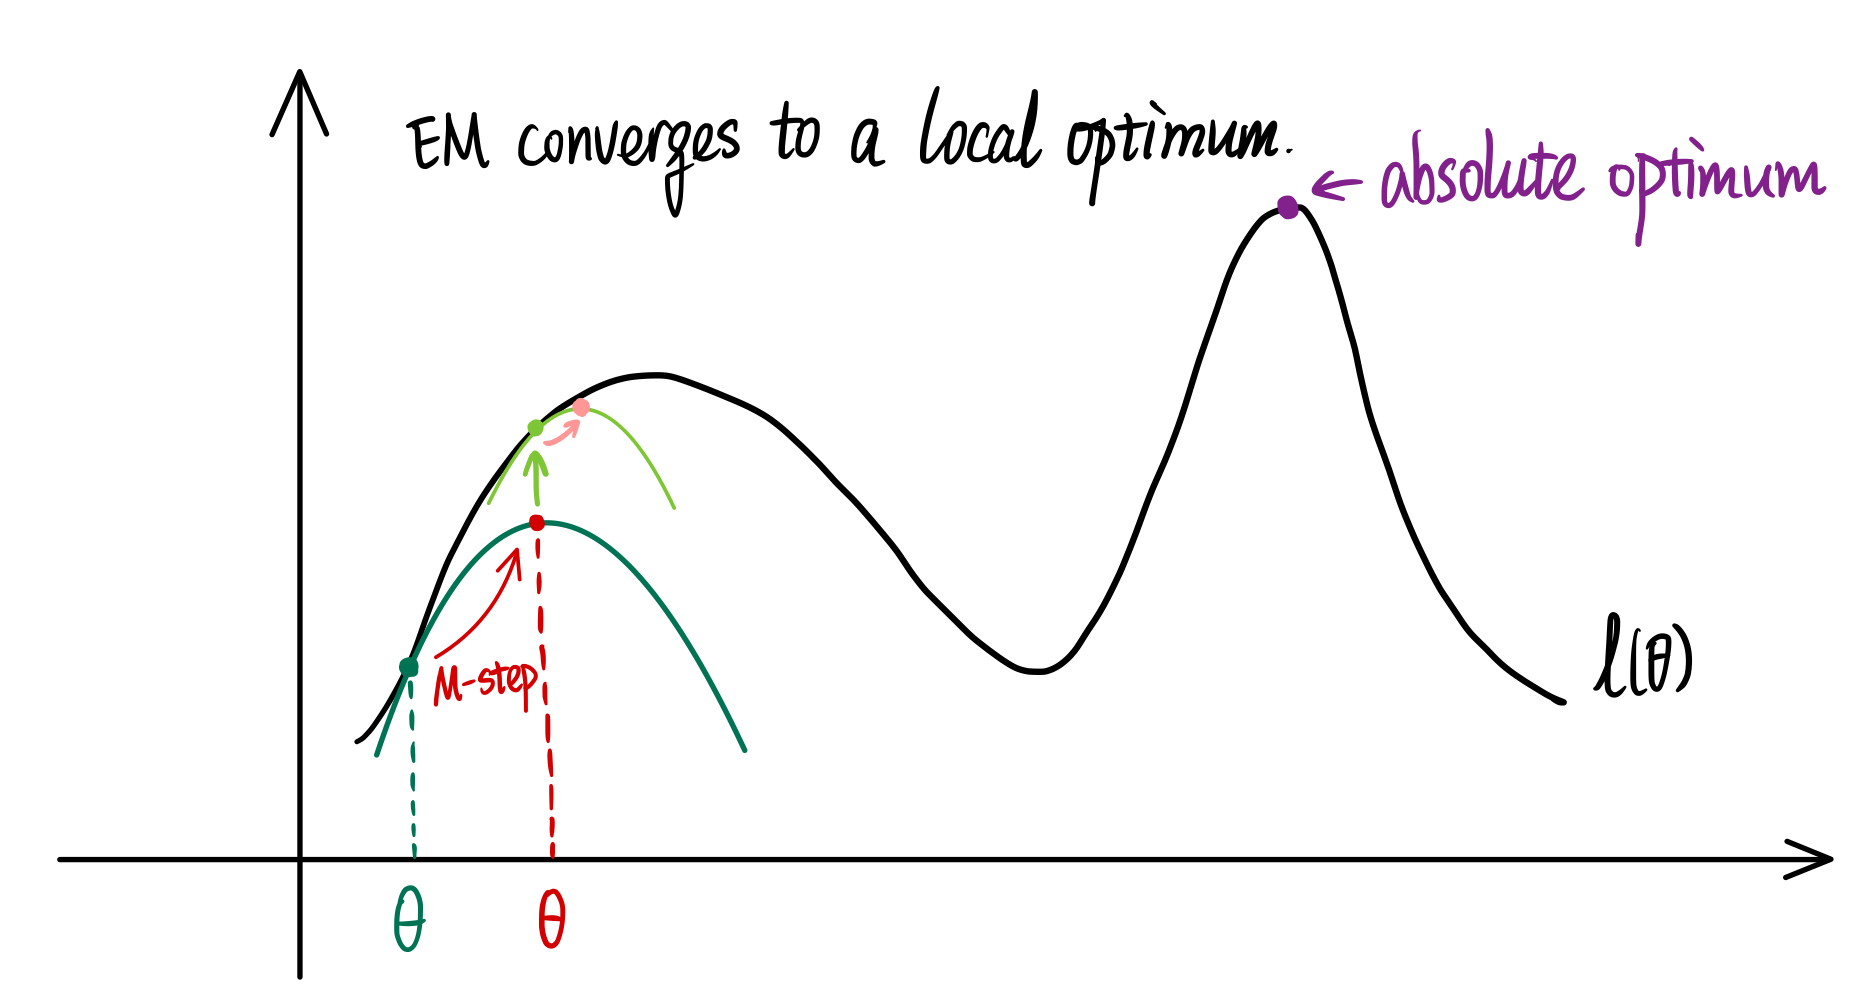 EM converges to a local optimum.
absolute optimum
M-step
l(θ)
θ
θ